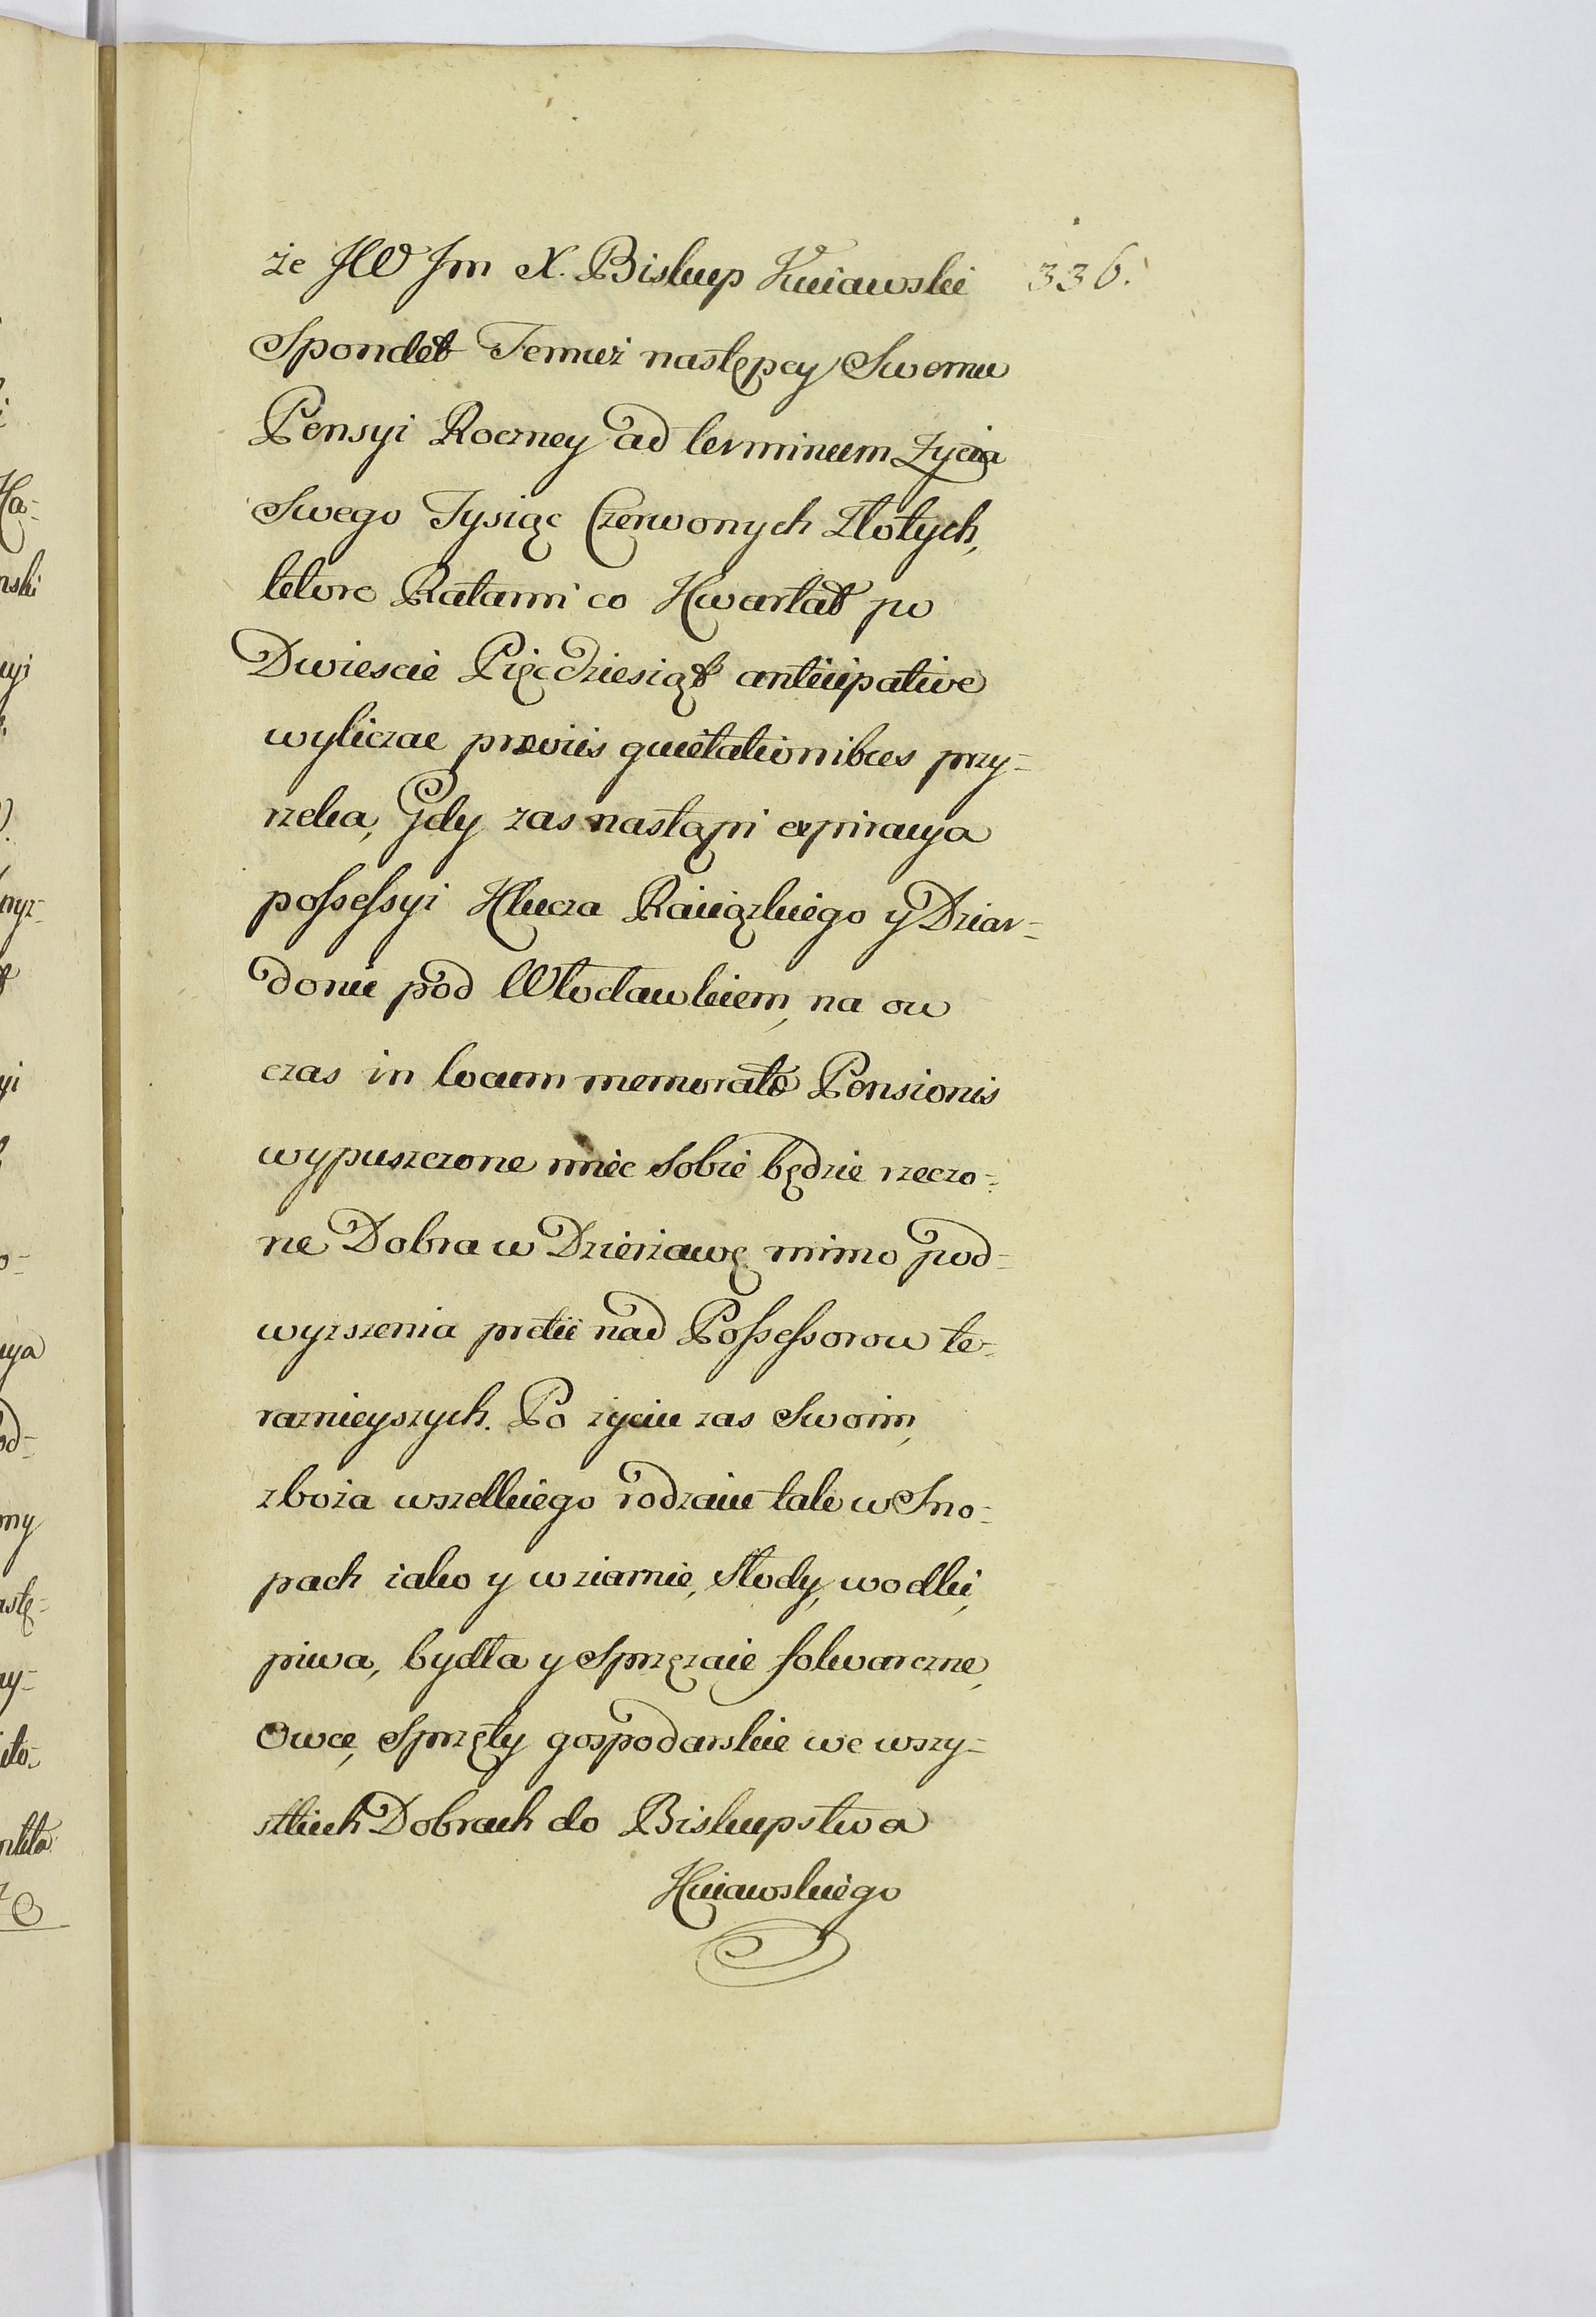 że JW Jm X. Biskup Kuiawski 336.
Spondet Temuż następcy Swemu
Pensyi Roczney ad terminum Życia
Swego Tysiąc Czerwonych Złotych,
ktore Ratami co Kwartał po
Dwiescie Pięcdziesiąt anticipative
wyliczac previis quietationibus przy-
rzeka, Gdy zas nastąpi expiracya
possessyi Klucza Raiązkiego y Dziar-
donic pod Włocławkiem, na ow
czas in locum memoratæ Pensionis
wypuszczone miec Sobie będzie rzeczo-
ne Dobra w Dzierżawę mimo pod-
wyzszenia pretii nad Possessorow te-
raznieyszych. Po zyciu zas Swoim,
zboża wszelkiego rodzaiu tak w Sno-
pach iako y w ziarnie, Słody, wodki,
piwa, bydła y Sprzęzaie folwarczne,
Owce, Sprzęty gospodarskie we wszy-
stkich Dobrach do Biskupstwa
Kuiawskiego